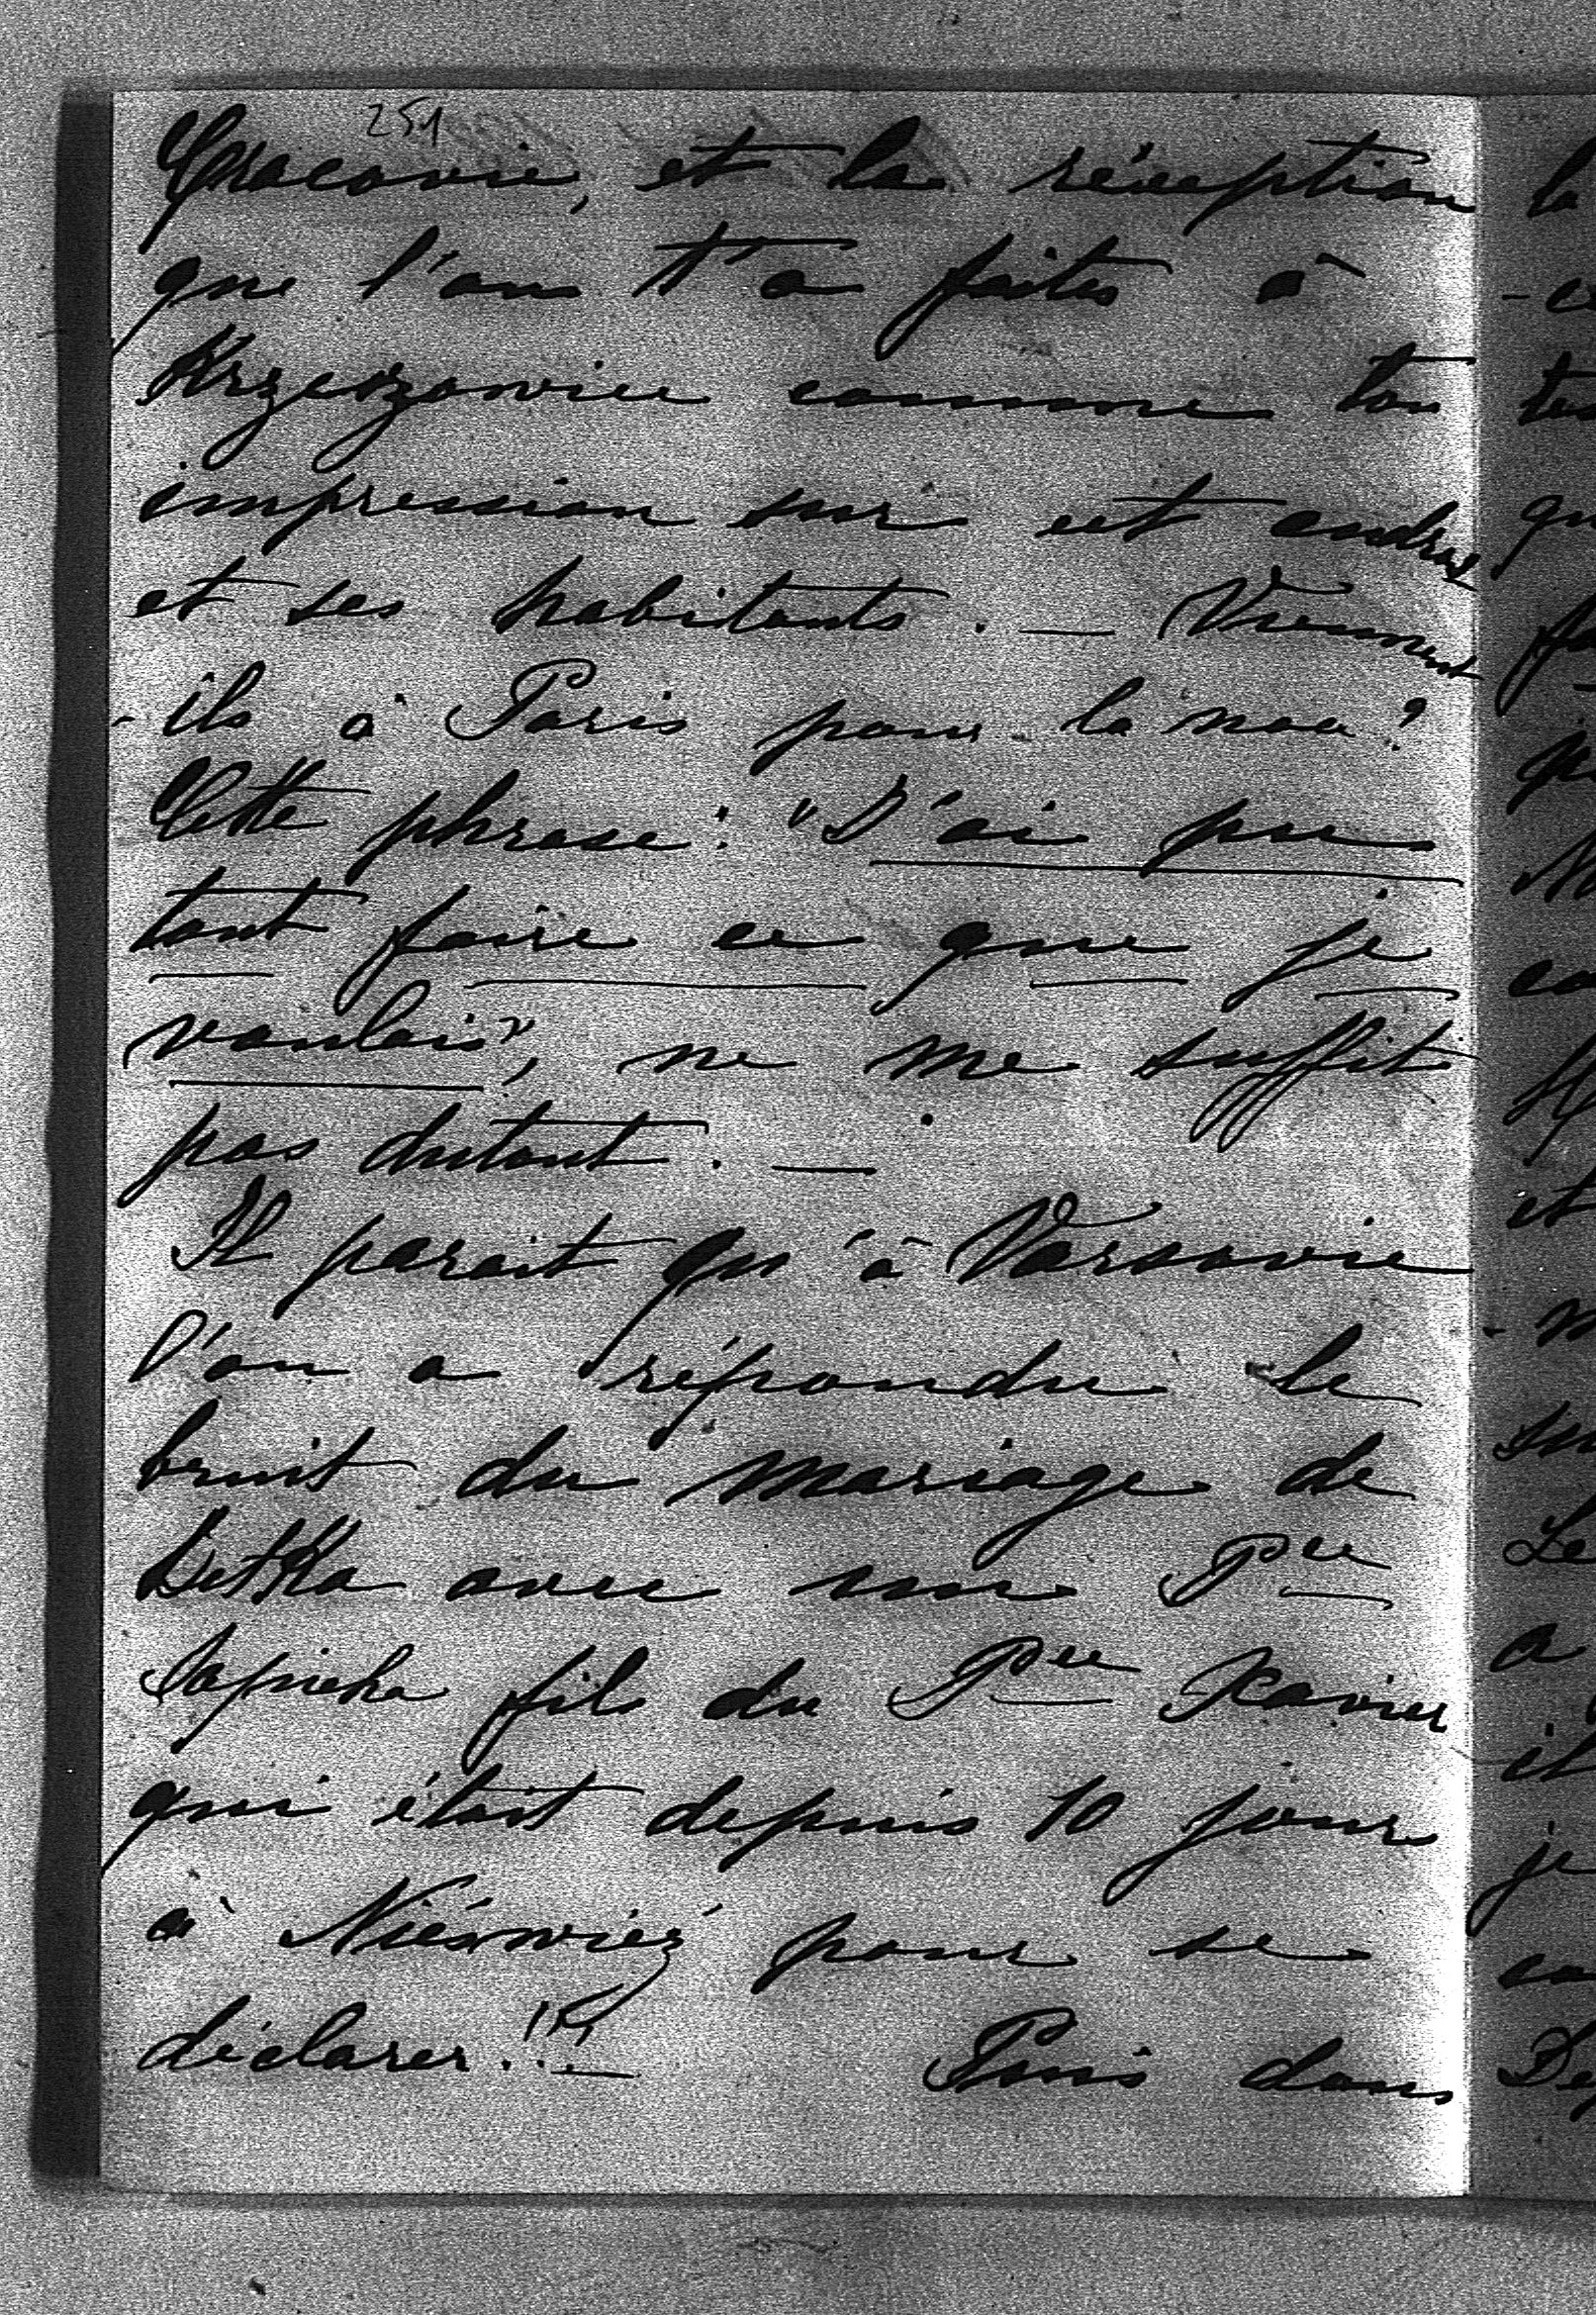 251
Cracovie, et la réception
que l'on t'a faites à
Krzeszowice comme ton
impression sur cet endroit
et ses habitants. — Viennent
-ils à Paris pour la noce?
Cette phrase: "J'ai pu
tout faire ce que je
voulais", ne me suffit
pas dutout. —
Il parait qu'à Varsovie
l'on a répondu le
bruit du mariage de
avec un Pce
Sapieha fils du Pce Xavier
qui était depuis 10 jours
à Nieśwież pour se
déclarer.!!! — Puis dans